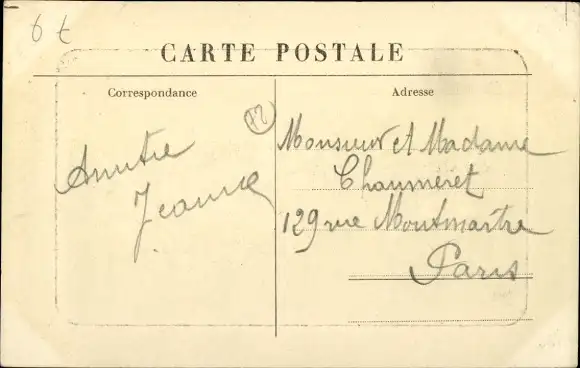 6 t
CARTE POSTALE
Correspondance
Amitié
Jeanne
72
Adresse
Monsieur et Madame
Chaumeret
129 rue Montmartre
Paris